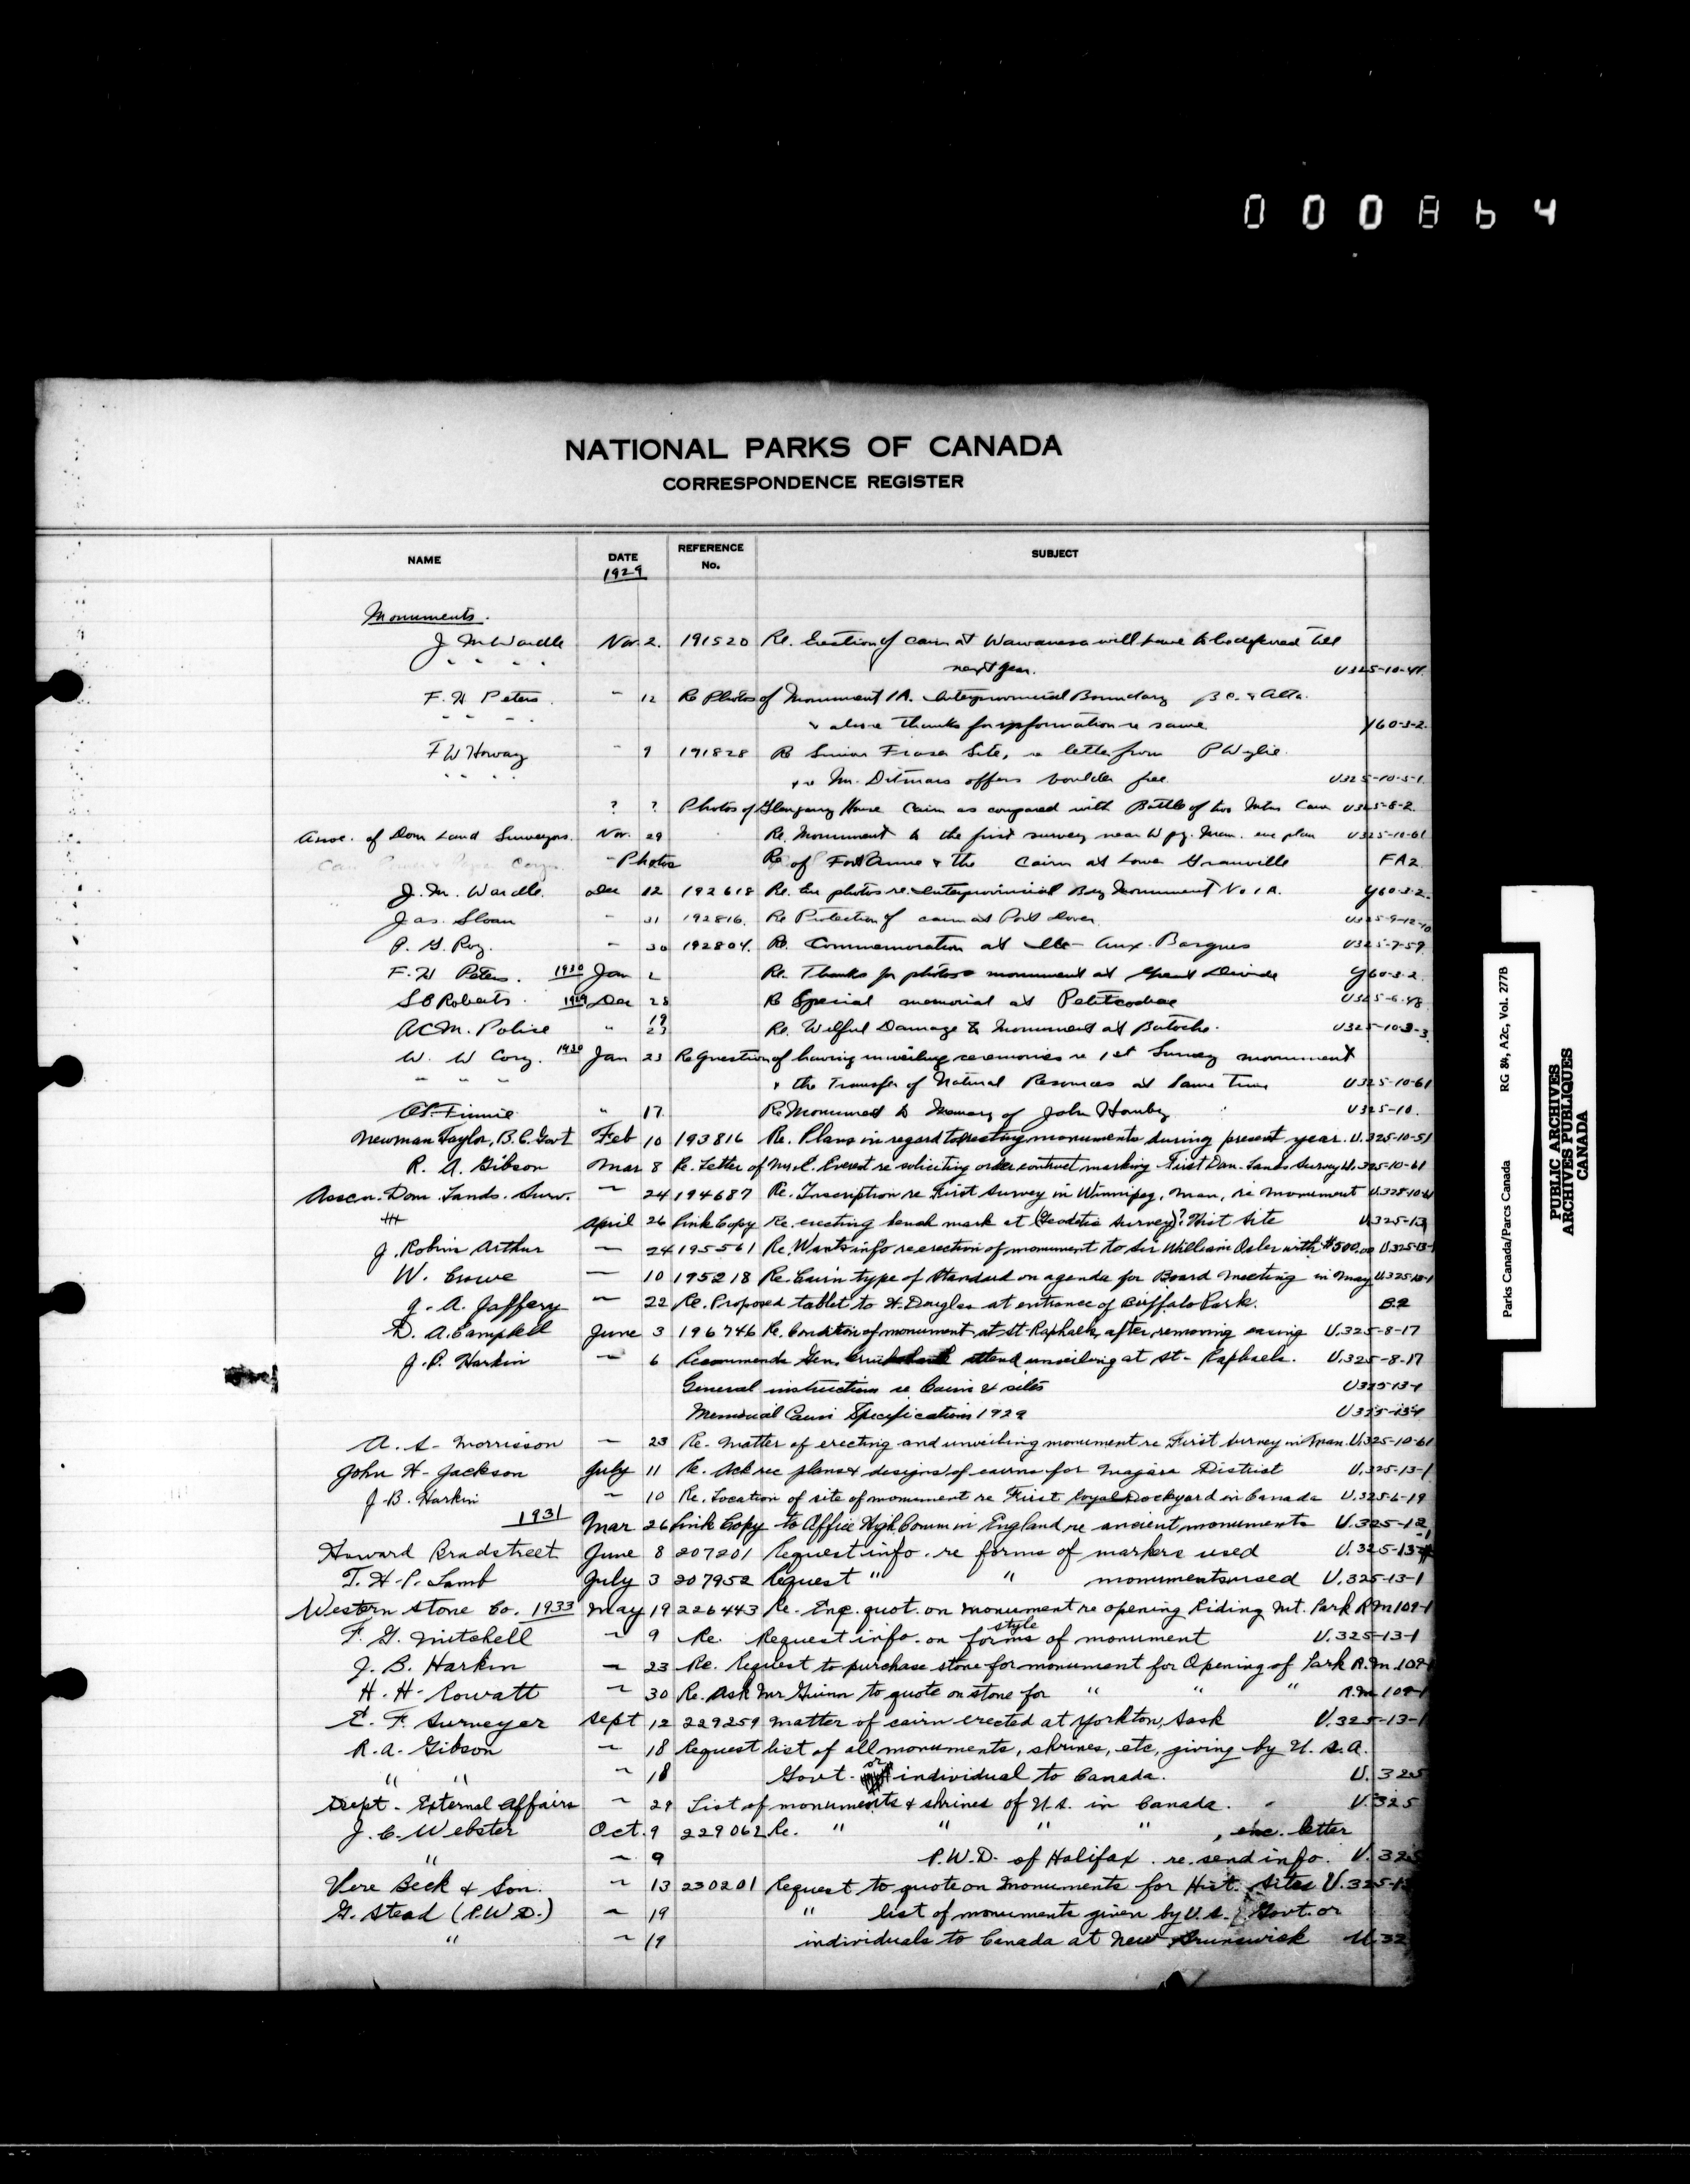 000864
NATIONAL PARKS OF CANADA
CORRESPONDENCE REGISTER
NAME DATE REFERENCE No. SUBJECT
1929
Monuments.
J M Wardle Nov. 2. 191520 Re. Erection of cairn at Wawanesa will have to be deferred till
" " " " next year. U325-10-47
F. H Peters. " 12 Re Photos of Monument 1A. Interprovincial Boundary B C. & Alta.
" " " " & above Thanks for information re same Y60-3-2.
F W Howay " 9 191828 Re Simon Fraser Site, re letter from P Wylie.
" " " " & re Mr. Ditmars offers boulder free. U325-10-5-1.
? ? Photos of Glengarry House Cairn as compared with Battle of Cairn U325-8-2.
Assoc. of Dom Land Surveyors. Nov. 29 Re. Monument to the first survey near Wpg. Man. enc plan U325-10-61
" Photos Re of Fort Anne & the Cairn at Lower Granville FA2
J. M. Wardle. Dec 12 192618 Re. Enc photos re. Interprovincial Bdy Monument No 1A. Y60-3-2.
Jas. Sloan " 31 192816. Re Protection of cairn at Port Dover U325-9-12-10
P. G. Roy. " 30 192804. Re. Commemoration at Ile-aux-Basques U325-7-59
F. H Peters. 1930 Jan 2 Re. Thanks for photos monument at Great Divide Y60-3-2
S B Roberts. 1929 Dec 28 Re Special memorial at Petitcodiac U325-6-48
R C M. Police " 19 23 Re. Wilful Damage to Monument at Batoche. U325-10-3-3
W. W Cory. 1930 Jan 23 Re question of having unveiling ceremonies re 1st Survey monument
" " " & the Transfer of Natural Resources at Same Time U325-10-61
O.S. Finnie " 17. Re Monument to Memory of John Hornby U325-10.
Newman Taylor, B.C. Govt Feb 10 193816 Re. Plans in regard to erecting monuments during present year. U.325-10-51
R. A. Gibson Mar 8 Re. Letter of Mr. C. Everest re soliciting order contract marking First Dom. Lands Survey U.325-10-61
Asscn. Dom Lands. Surv. " 24 194687 Re. Inscription re First Survey in Winnipeg, Man, re monument U.325-10-61
April 26 Pink Copy Re. erecting bench mark at (Geodetic Survey)? Hist Site U.325-13
J. Robin Arthur — 24 195561 Re. Wants info re erection of monument to Sir William Osler with $500.00 U.325-13-1
W. Crowe — 10 195218 Re. Cairn type of standard on agenda for Board Meeting in May U.325-13-1
J. A. Jaffery " 22 Re. Proposed tablet to H. Douglas at entrance of Buffalo Park. B.2
D. A. Campbell June 3 196746 Re. Condition of monument, at St-Raphaels, after, removing casing U.325-8-17
J. P. Harkin " 6 Recommends Gen. Cruikshank attend unveiling at St- Raphaels. U.325-8-17
General instructions re Cairns & sites U325-13-1
Memorial Cairn Specifications 1929 U325-13-1
A. S. Morrisson — 23 Re. Matter of erecting and unveiling monument re First Survey in Man. U.325-10-61
John H. Jackson July 11 Re. Ack rec plans & designs of cairns for Niagara District U.325-13-1
J. B. Harkin " 10 Re. Location of site of monument re First loyal Dockyard in Canada U.325-6-19
1931 Mar 26 Pink Copy to Office High Comm in England re ancient monuments U.325-12-1
Howard Bradstreet June 8 207201 Request info. re forms of markers used U.325-13-1
T. H. P. Lamb July 3 207952 Request " " monuments used U.325-13-1
Western Stone Co. 1933 May 19 226443 Re. Enc. quot. on monument re opening Riding Mt. Park R.M109-1
F. G. Mitchell " 9 Re. Request info. on forms style of monument U.325-13-1
J. B. Harkin — 23 Re. Request to purchase stone for monument for Opening of Park R.M.109-1
H. H. Rowatt " 30 Re. Ask Mr Guinn to quote on stone for " " " R.M.109-1
E. F. Surveyer Sept 12 229259 Matter of cairn erected at Yorkton, Sask U.325-13-1
R. A. Gibson " 18 Request list of all monuments, shrines, etc, giving by U. S. A.
" " " 18 Govt. or individual to Canada. U.325
Dept. External Affairs " 29 List of monuments & shrines of U.S. in Canada. U.325
J. C. Webster Oct. 9 229062 Re. " " " " , enc. letter
" " 9 P.W.D. of Halifax. re. send info. U.325
Vere Beck & Son. " 13 230201 Request to quote on Monuments for Hist. Sites U.325-13
G. Stead (P.W.D.) " 19 " list of monuments given by U.S. Govt. or
" " 19 individuals to Canada at New Brunswick U.32
Parks Canada/Parcs Canada RG 84, A2c, Vol. 277B
PUBLIC ARCHIVES
ARCHIVES PUBLIQUES
CANADA